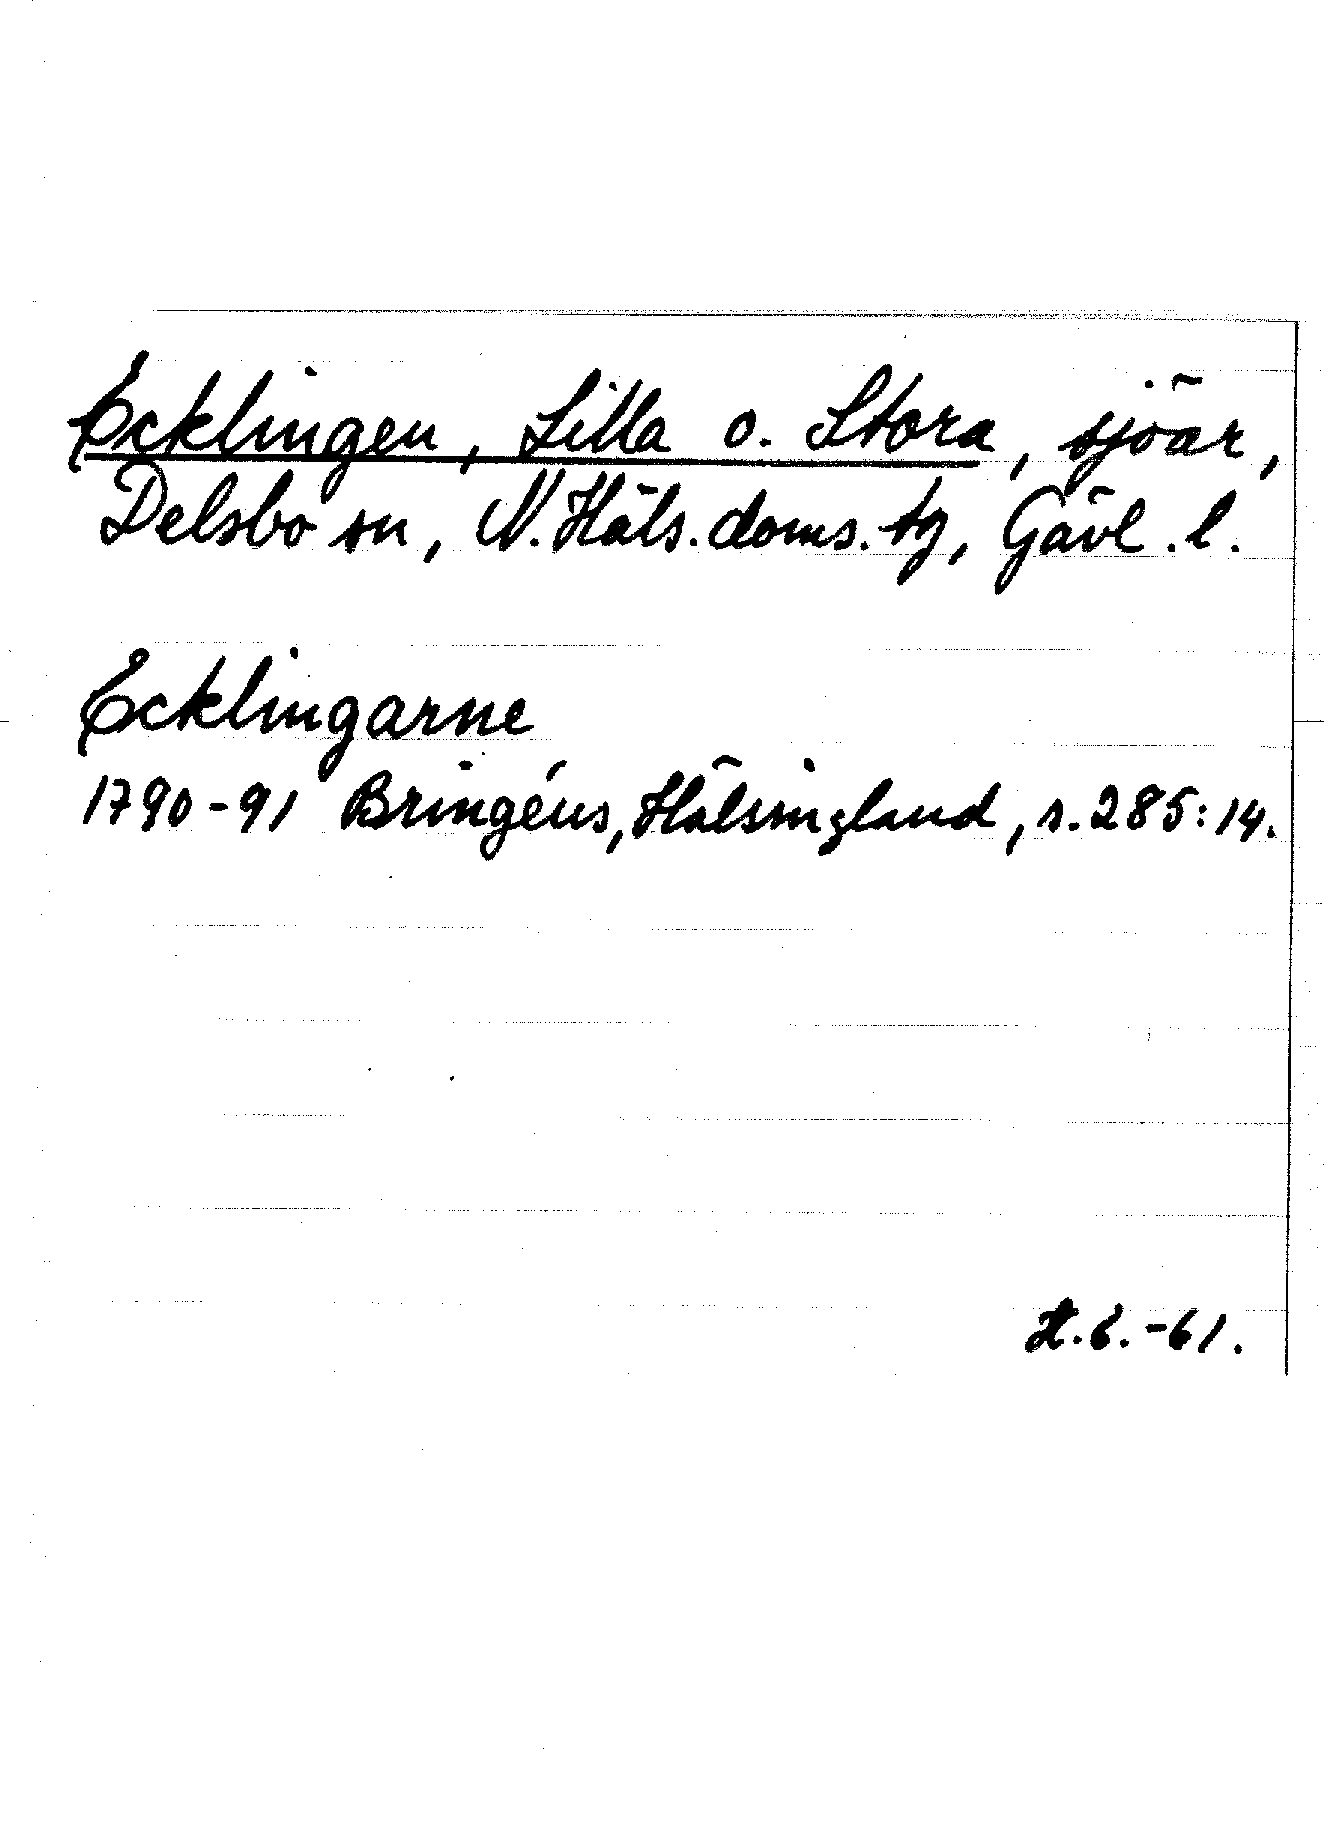 Ecklingen, Lilla o. Stora, sjöar,
Delsbo sn, N. Häls. doms. tg, Gävl. l.
Ecklingarne
1790-91 Bringéus, Hälsingland, s. 285:14.
-61.